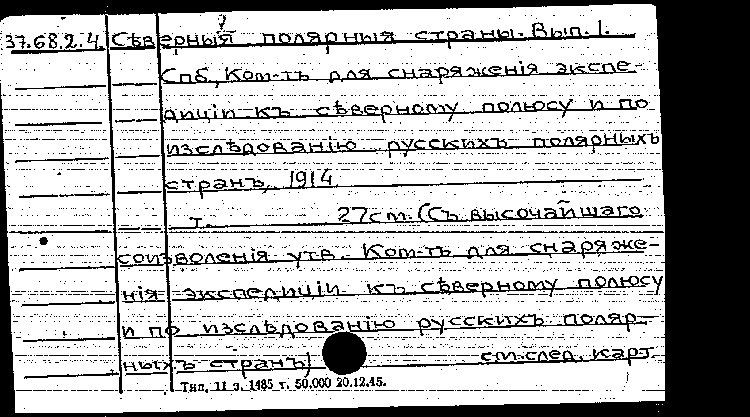 37.68.2.4. Сѣверныя полярныя страны. Вып. 1.
Спб, Ком-тъ для снаряженія экспе-
диціи къ сѣверному полюсу и по
изслѣдованію русскихъ полярныхъ
странъ, 1914
т. 27см. (Съ высочайшаго
соизволенія утв. Ком-тъ для снаряже-
нія экспедиціи къ сѣверному полюсу
и по изслѣдованію русскихъ поляр-
ныхъ странъ) см. след. карт.
Тип. 11 з. 1485 т. 50,000 20.12.45.